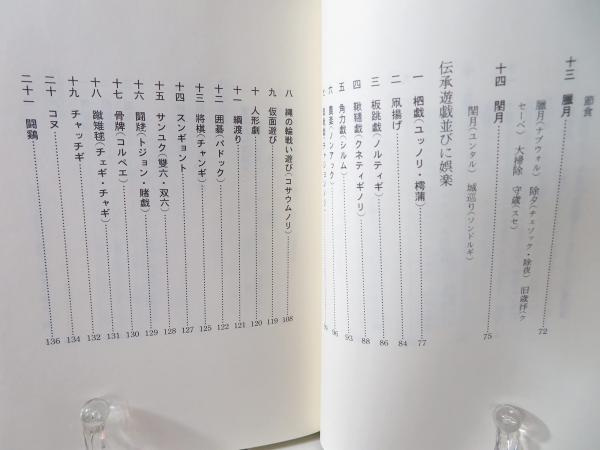 節食
十三 臘月 72
臘月(ナプウォル) 除夕(チェソック・除夜) 旧歳拝(ク
セーベ) 大掃除 守歳(スセ)
十四 閏月 75
閏月(ユンタル) 城巡り(ソンドルギ)
伝承遊戯並びに娯楽
一 栖戯(ユッノリ・樗蒲) 77
二 凧揚げ 84
三 板跳戯(ノルティギ) 86
四 鞦韆戯(クネティギノリ) 88
五 角力戯(シルム) 93
六 農楽(ノンアック) 96
八 縄の輪戦い遊び(コサウムノリ) 108
九 仮面遊び 119
十 人形劇 120
十一 綱渡り 121
十二 囲碁(バドック) 122
十三 将棋(チャンギ) 125
十四 スンギョント 127
十五 サンユク(雙六・双六) 128
十六 闘牋(トジョン・賭戯) 129
十七 骨牌(コルペエ) 130
十八 蹴雉毬(チェギ・チャギ) 131
十九 チャッチギ 132
二十 コヌ 134
二十一 闘鶏 136